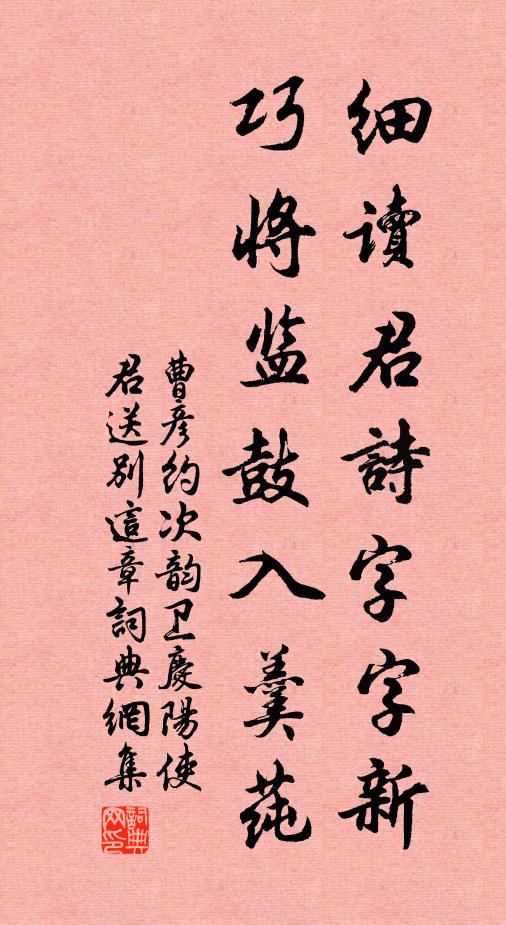 细讀君詩字字新
巧将监鼓入羹莼
曹彦约次韵卫慶陽使
君送别這章詞典網集
詞典
网印